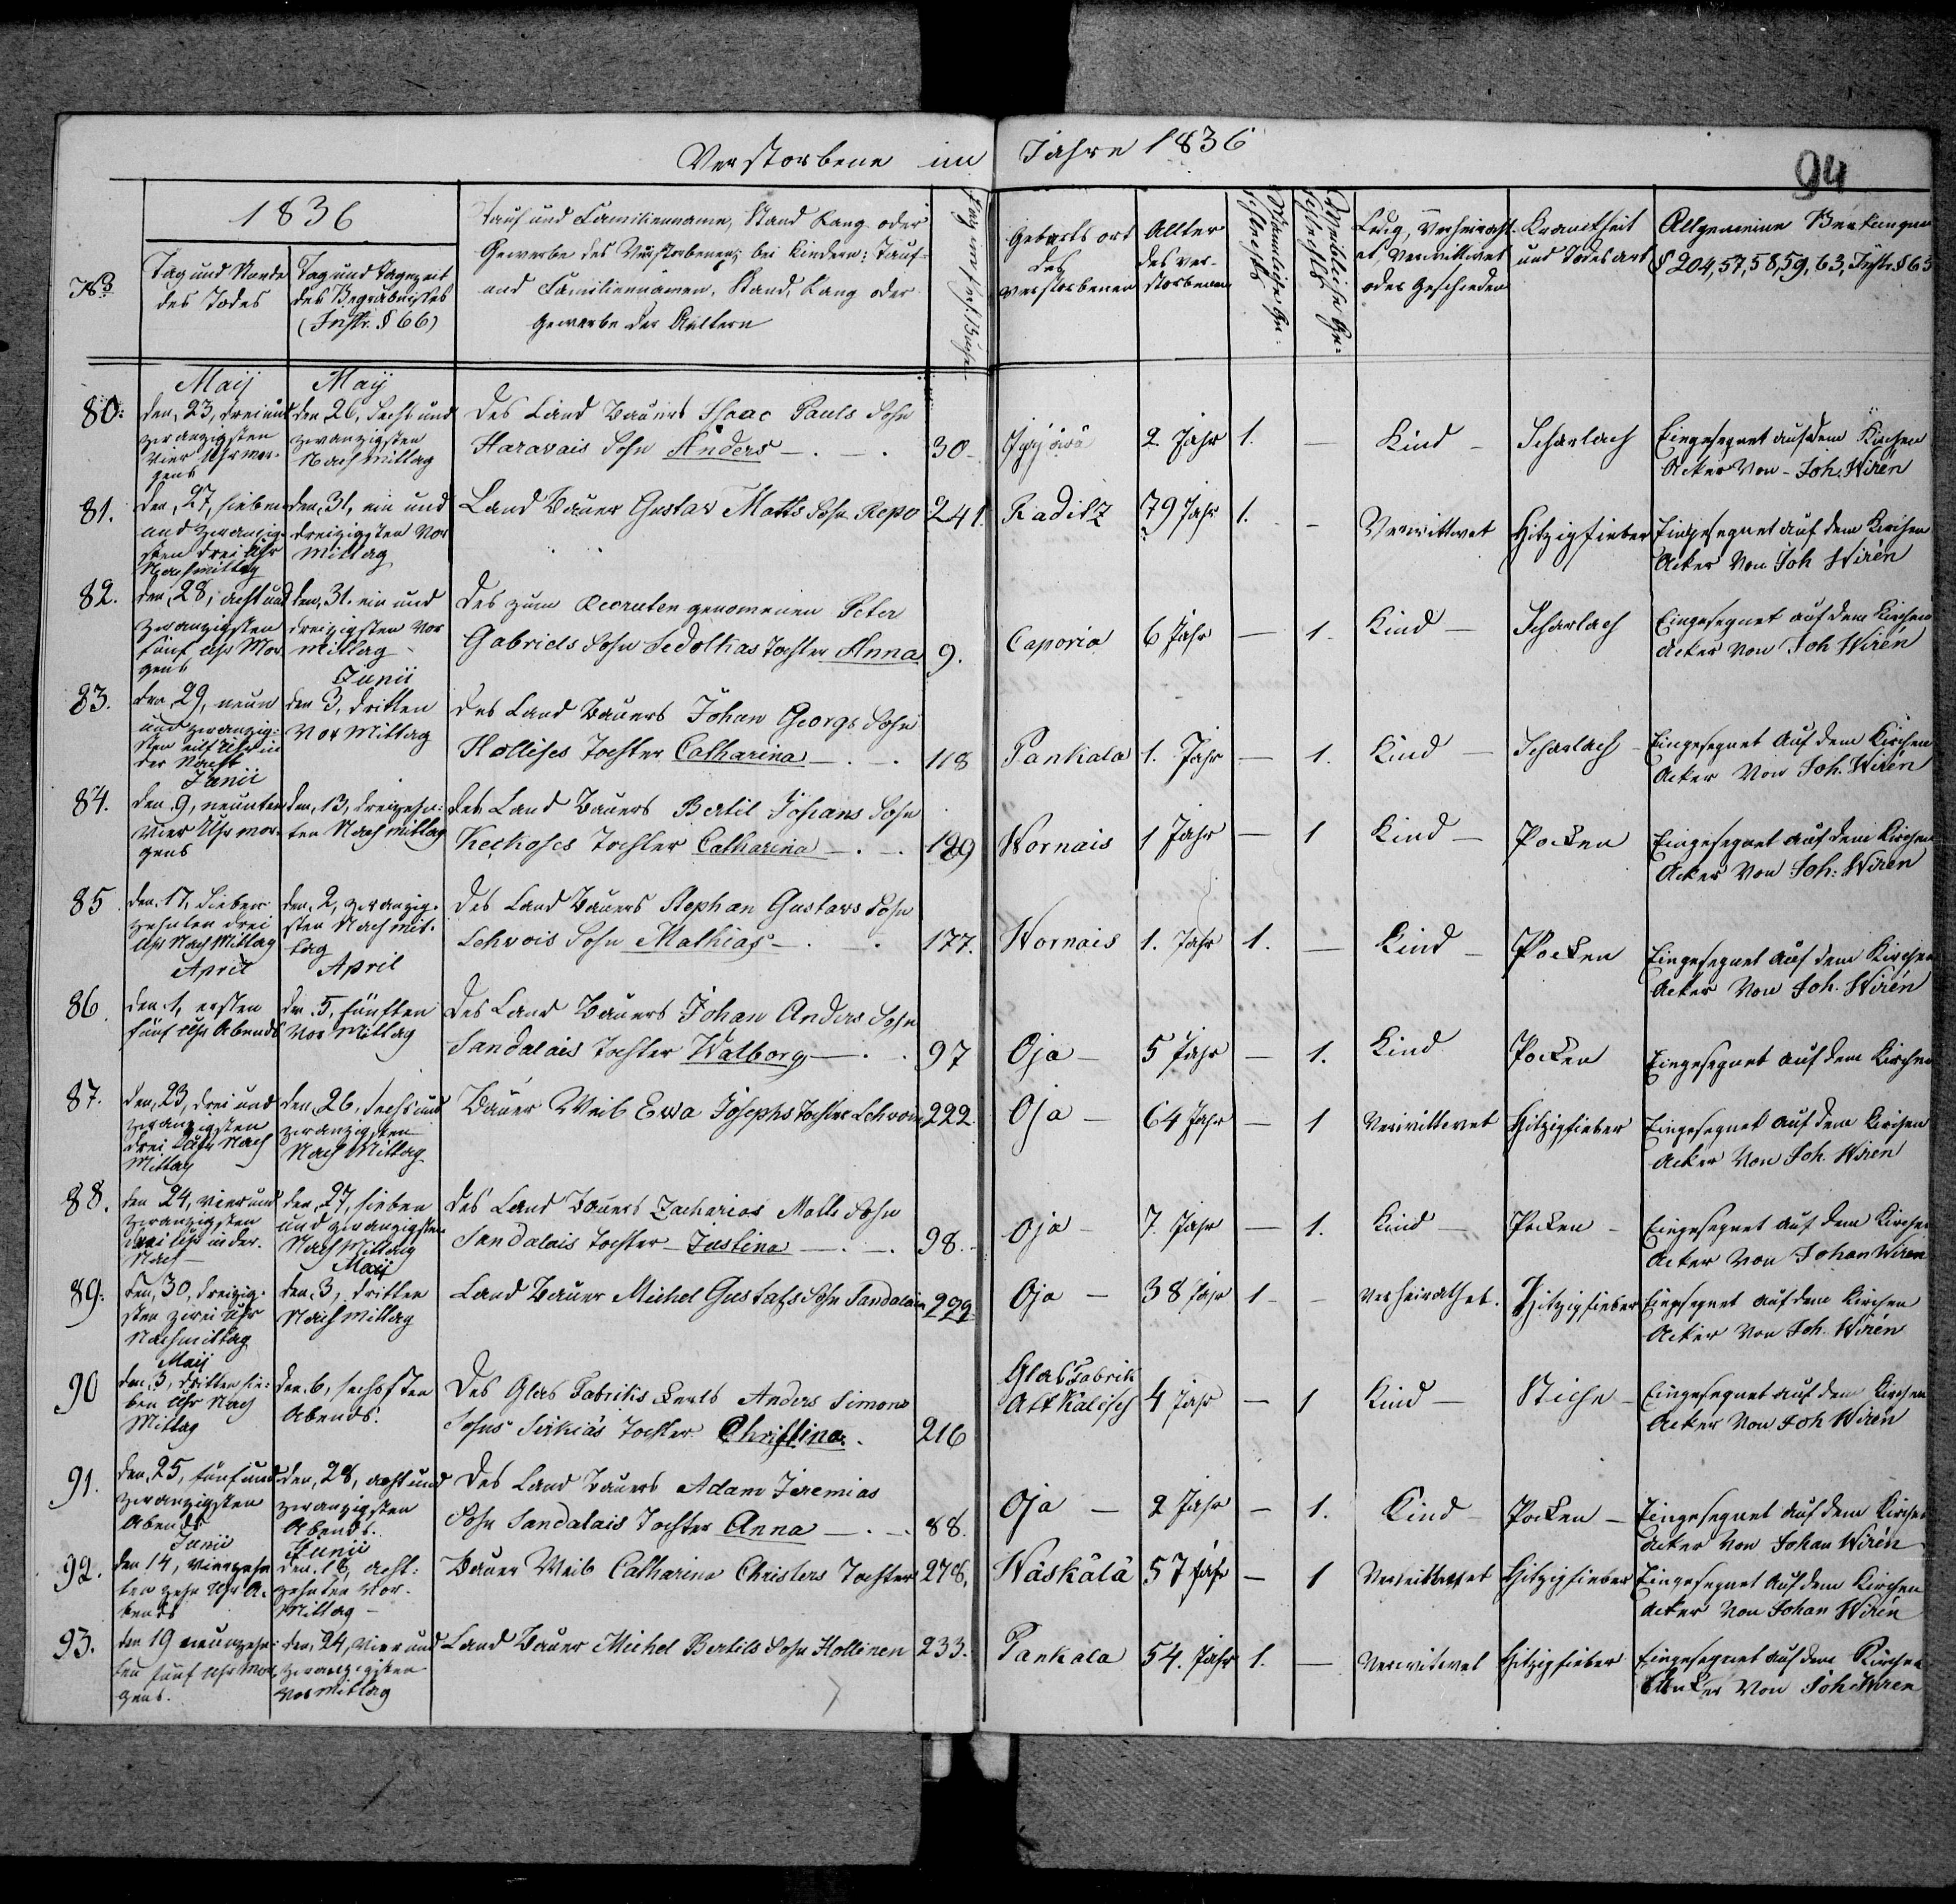 Verstorbene im Jahre 1836
94
1836
№
Tag und Stunde
des Todes
Tag und Tageszeit
des Begräbnißes
(Instr. § 66)
Tauf und Familienname, Stand Rang oder
Gewerbe des Verstorbenen; bei Kindern: Tauf-
und Familiennamen, Stand, Rang oder
Gewerbe der Aeltern
Geburts ort
des
Verstorbenen
Alter
des Ver-
storbenen
Männliche Ge-
schlechts
Weibliche Ge-
schlechts
Ledig, Verheirath
et, Verwittwet
oder Geschieden
Krankheit
und Todesart
Allgemeine
§ 204, 57, 58, 59, 63, Instr. § 65
Maij
Maij
80.
den, 23, drei und
zwanzigsten
vier Uhr mor-
gens
den, 26, sechs und
zwanzigsten
Nachmittag
Des Land Bauers Isaac Pauls Sohn
Haravais Sohn Anders
30
2 Jahr
1.
—
Kind
Scharlach
Eingesegnet auf dem Kirchen
Acker Von Joh. Wirén
81.
den, 27, sieben
und zwanzig-
sten drei Uhr
Nachmittag
den, 31, ein und
dreizigsten Vor
Mittag
Land Bauer Gustav Matts Sohn Repo
241.
Radilz
79 Jahr
1.
-
Verwittwet
Hitzigfieber
Eingesegnet auf dem Kirchen
Acker Von Joh Wirén
82.
den, 28, acht und
zwanzigsten
fünf Uhr Mor
gens
den, 31. ein und
dreizigsten Vor
mittag
Des zum Recruten genomenen Peter
Gabriels Sohn Sedolkas Tochter Anna
9.
Caporia
6 Jahr
—
1.
Kind
Scharlach
Eingesegnet auf dem Kirchen
Acker Von Joh Wirén
Junii
83.
den, 29, neun
und zwanzig-
sten eilf Uhr in
der Nacht
den 3, dritten
Vor Mittag
Des Land Bauers Johan Georgs Sohn
Hollises Tochter Catharina
118
Pankala
1. Jahr
—
1.
Kind
Scharlach
Eingesegnet Auf dem Kirchen
Acker Von Joh. Wirén
Junii
84.
den 9, neunten
Vier Uhr mor-
gens
den, 13, dreizehn-
ten Nachmittag
Des Land Bauers Bertil Johans Sohn
Keckoses Tochter Catharina
199
Wornais
1 Jahr
—
1
Kind
Pocken
Eingesegnet auf dem Kirchen
Acker Von Joh: Wirén
85.
den 17, sieben
zehnten drei
Uhr Nach Mittag
den, 2, zwanzig-
sten Nachmit-
tag
Des Land Bauers Stephan Gustavs Sohn
Lehvois Sohn Mathias
177.
Wornais
1. Jahr
1.
—
Kind
Pocken
Eingesegnet auf dem Kirchen
Acker Von Joh. Wirén
April
April
86
den, 1, ersten
fünf Uhr Abends
den 5, fünften
Vor Mittag
Des Land Bauers Johan Anders Sohn
Sandalais Tochter Walborg
97
Oja
5 Jahr
—
1.
Kind
Pocken
Eingesegnet auf dem Kirchen
87.
den, 23, drei und
zwanzigsten
drei Uhr Nach
Mittag
den, 26, sechs und
zwanzigsten
Nach Mittag
Bauer Weib Ewa Josephs Tochter Lehvoin
222
Oja
64 Jahr
—
1
Verwittwet
Hitzigfieber
Eingesegnet auf dem Kirchen
Acker Von Joh. Wirén
88.
den 24, vier und
zwanzigsten
drei Uhr in der
Nach
den, 27, sieben
und zwanzigsten
Nach Mittag
Des Land Bauers Zacharias Matts Sohn
Sandalais Tochter Justina
98.
Oja
7. Jahr
—
1.
Kind
Pocken
Eingesegnet auf dem Kirchen
Acker Von Johan Wirén
Maij
89.
den, 30, dreizig-
sten zwei Uhr
Nachmittag
den, 3, dritten
Nachmittag
Land Bauer Michel Gustafs Sohn Sandalain
299
Oja
38 Jahr
1
-
Verheirathet.
Hitzigfieber
Eingesegnet auf dem Kirchen
Acker Von Joh. Wirén
Maij
90
den, 3, dritten sie-
ben Uhr Nach
Mittag
den, 6, sechsten
Abends.
Des Glas Fabriks Kerls Anders Simons
Sohns Sirkiäs Tochter Christina.
216
Glas Fabrik
Alt Kalisch
4 Jahr
—
1
Kind
Stiche
Eingesegnet auf dem Kirchen
Acker Von Joh Wirén
91.
den, 25, fünf und
zwanzigsten
Abends
den, 28, acht und
zwanzigsten
Abends.
Des Land Bauers Adam Jeremias
Sohn Sandalais Tochter Anna
88.
Oja
2 Jahr
—
1.
Kind
Pocken
Eingesegnet auf dem Kirchen
Acker Von Johan Wirén
Junii
Junii
92.
den 14, vierzehn
ten zehn Uhr A-
bends
den, 18, acht-
zehnten Vor-
Mittag
Bauer Weib Catharina Christers Tochter
278.
Wäskälä
57 Jahr
—
1
Hitzigfieber
Eingesegnet Auf dem Kirchen
Acker Von Johan Wirén
93.
den 19 neunzehn-
ten fünf Uhr Mor-
gens.
den, 24, Vier und
zwanzigsten
Vor Mittag
Land Bauer Michel Bertils Sohn Hollinen
233.
Pankala
54. Jahr
1.
—
Verwitwet
Hitzigfieber
Eingesegnet auf dem Kirchen
Acker Von Joh Wirén